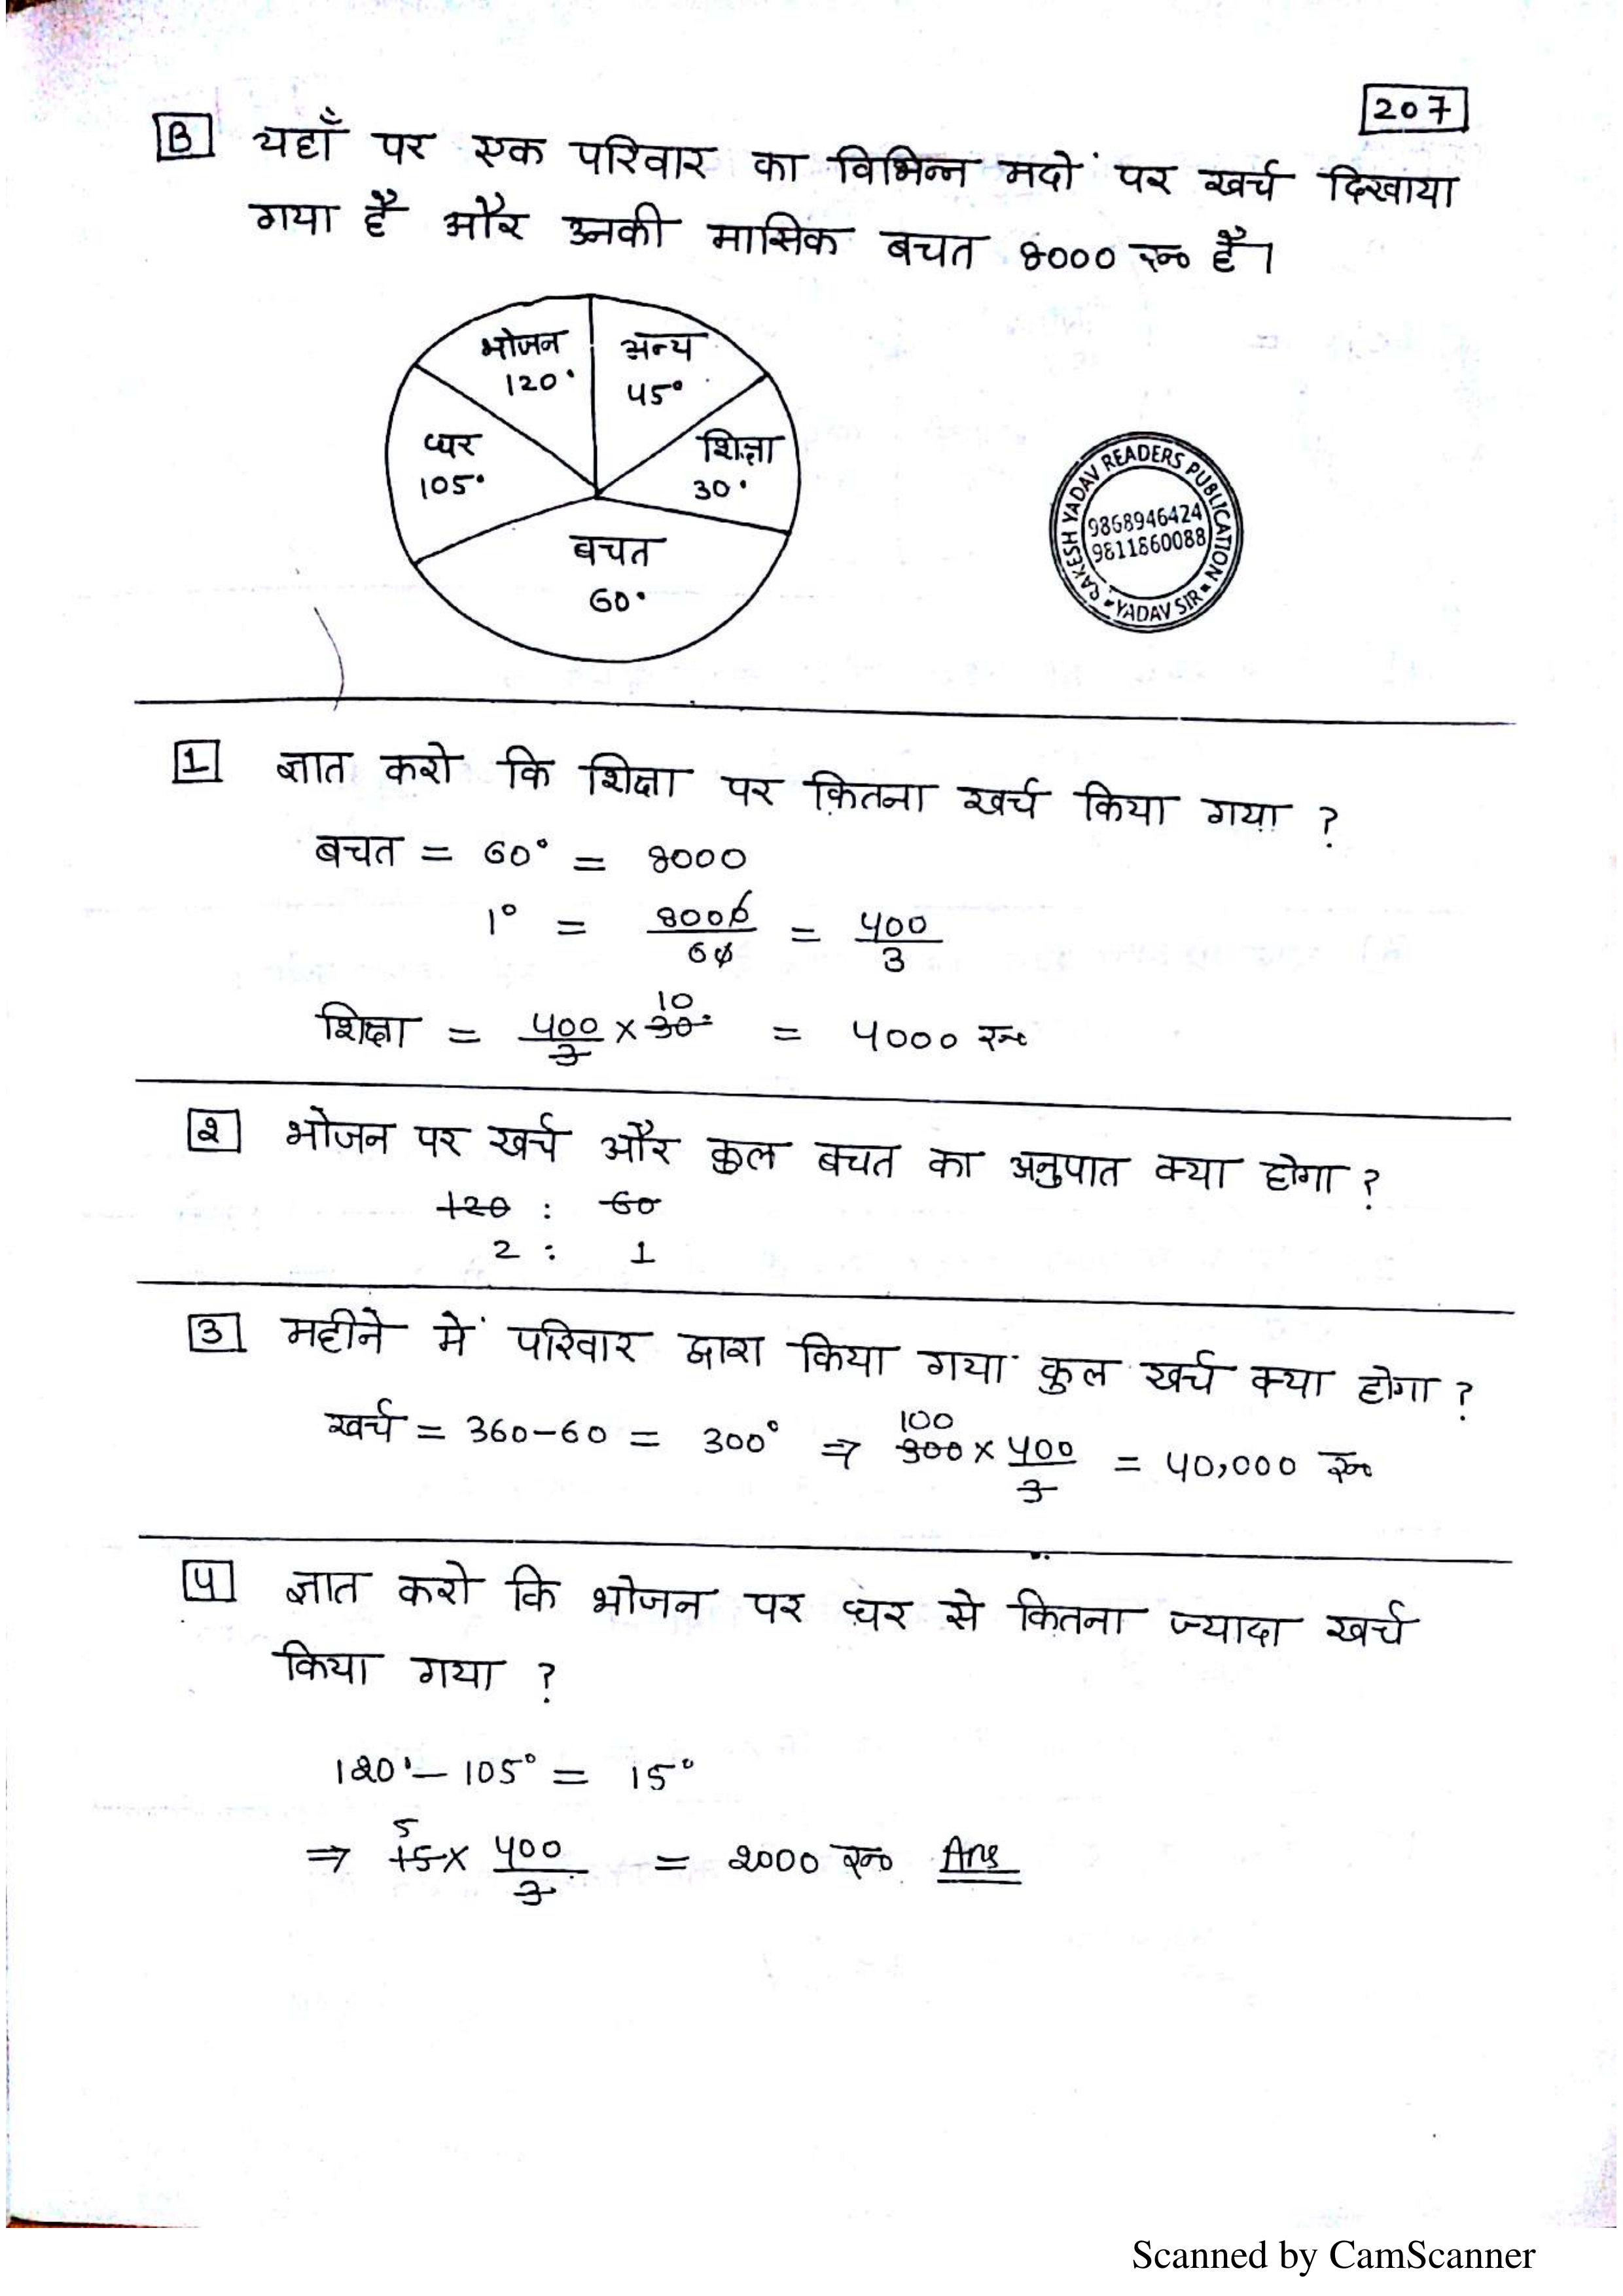 207
B यहाँ पर एक परिवार का विभिन्न मदों पर खर्च दिखाया
गया है और उनकी मासिक बचत 8000 रू० है।
भोजन
120°
अन्य
45°
घर
105°
शिक्षा
30°
बचत
60°
RAKESH YADAV READERS PUBLICATION
9868946424
9811860088
YADAV SIR
1 ज्ञात करो कि शिक्षा पर कितना खर्च किया गया ?
बचत = 60° = 8000
1° = 8000/60 = 400/3
शिक्षा = 400/3 × 30° 10 = 4000 रू०
2 भोजन पर खर्च और कुल बचत का अनुपात क्या होगा ?
120 : 60
2 : 1
3 महीने में परिवार द्वारा किया गया कुल खर्च क्या होगा ?
खर्च = 360-60 = 300° ⇒ 300 100 × 400/3 = 40,000 रू०
4 ज्ञात करो कि भोजन पर घर से कितना ज्यादा खर्च
किया गया ?
120° - 105° = 15°
⇒ 15 5 × 400/3 = 2000 रू० Ans
Scanned by CamScanner